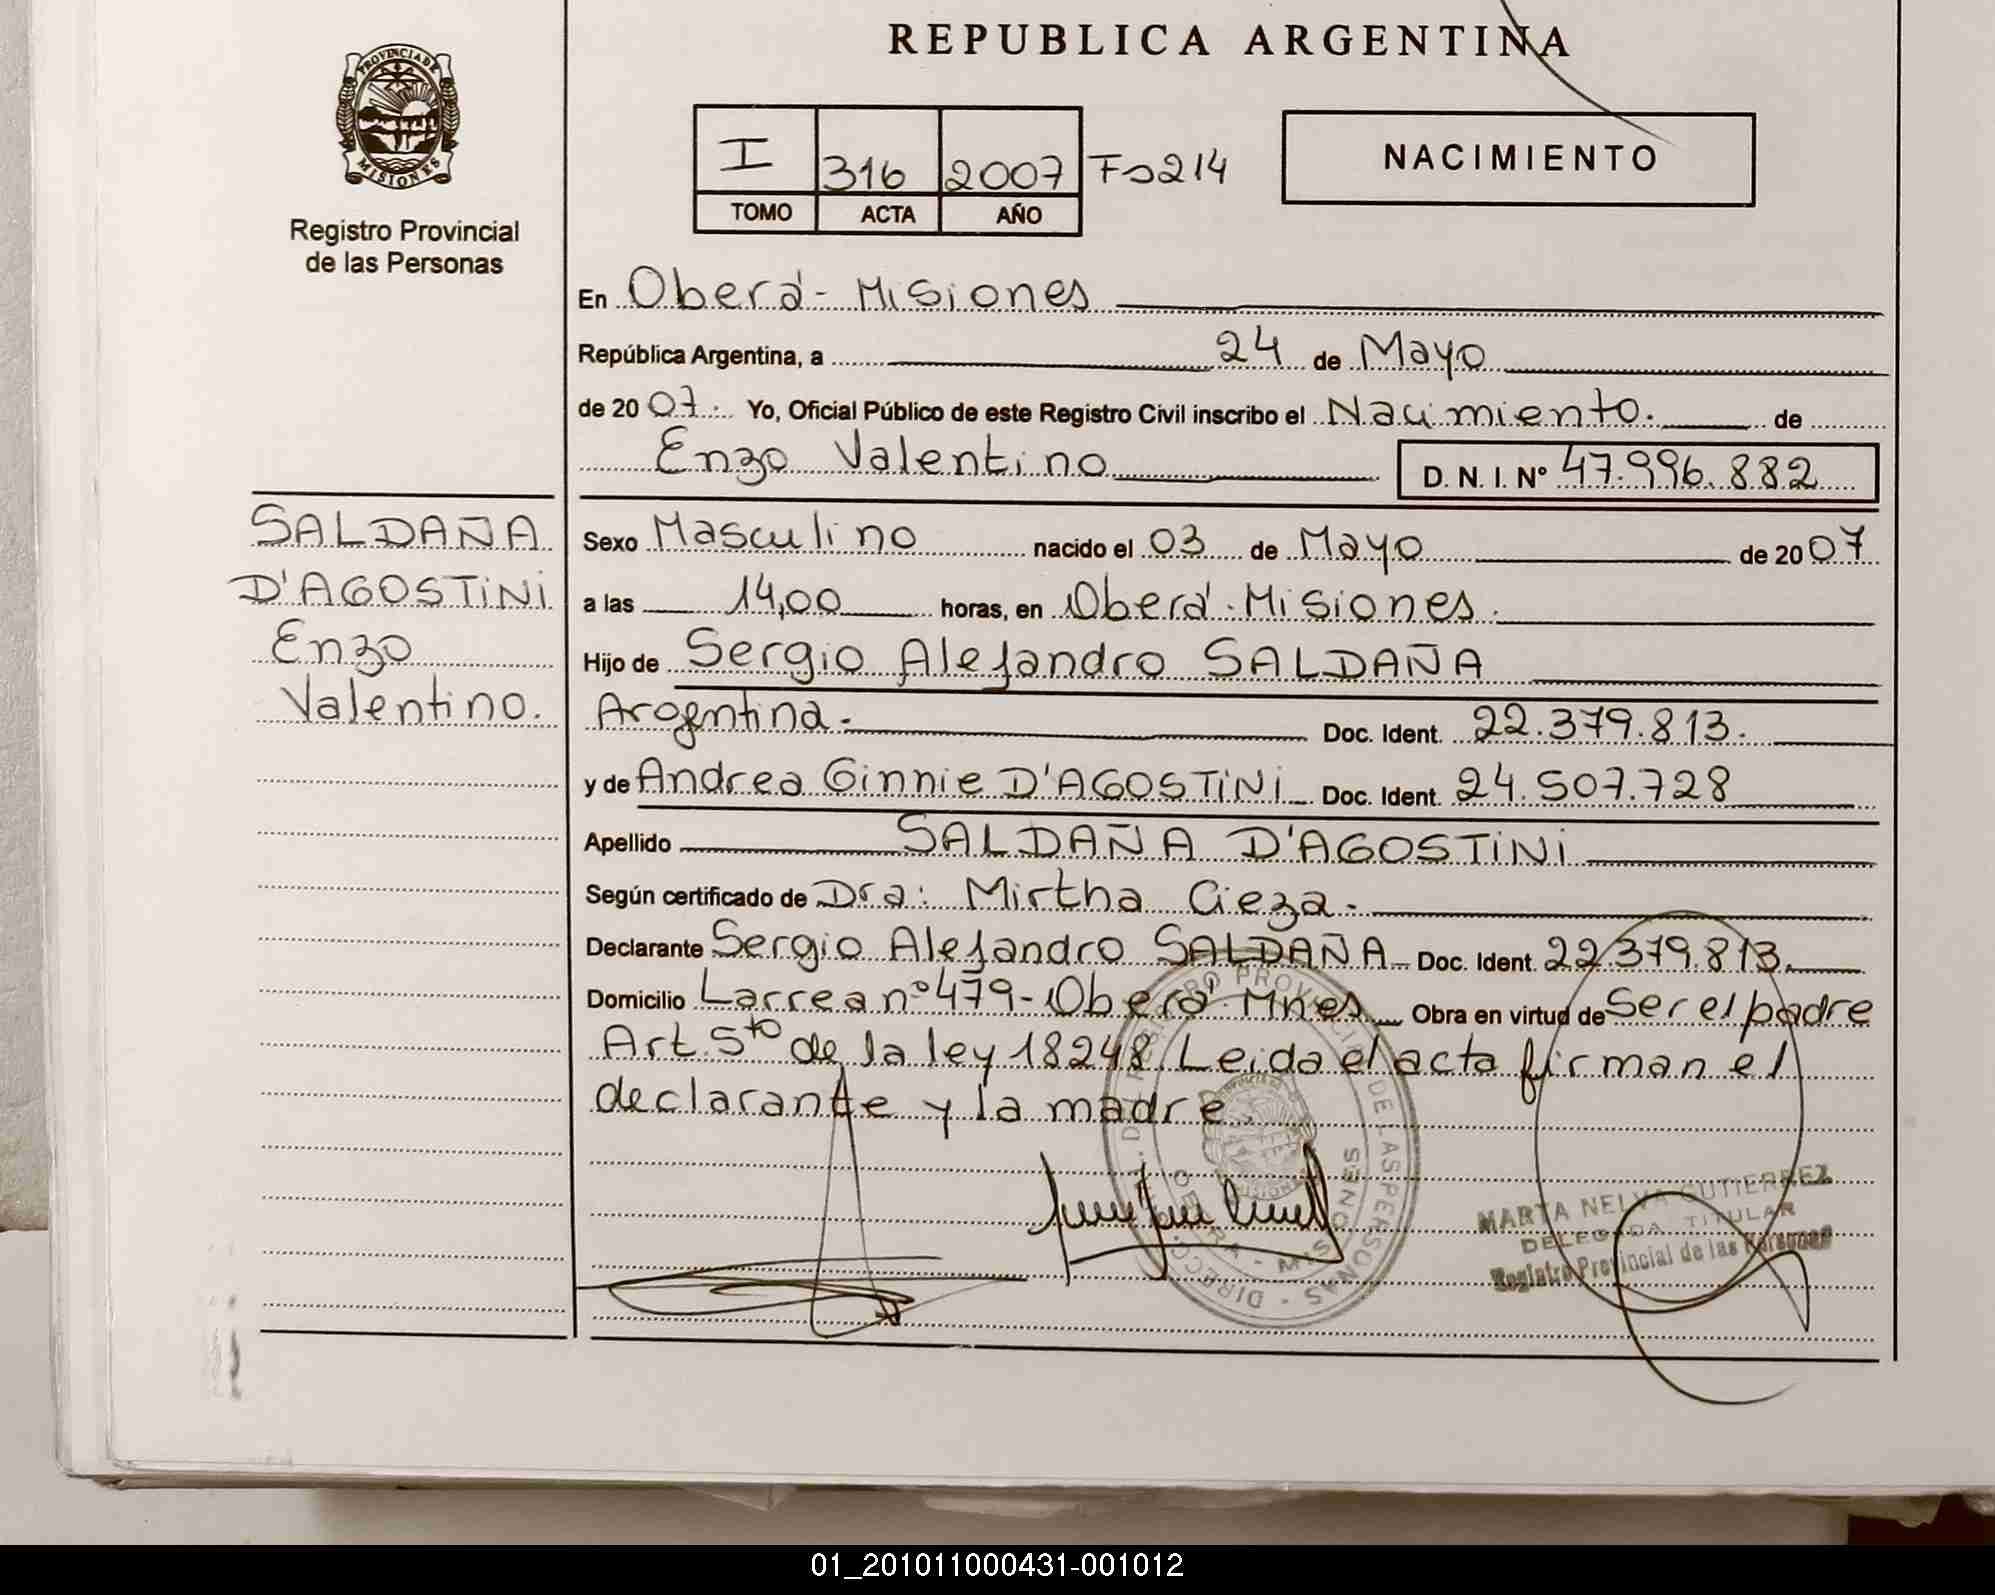 REPUBLICA ARGENTINA
PROVINCIA DE MISIONES
Registro Provincial
de las Personas
I 316 2007 Fo 214
TOMO ACTA AÑO
NACIMIENTO
En Oberá - Misiones
República Argentina, a 24 de Mayo
de 2007. Yo, Oficial Público de este Registro Civil inscribo el Nacimiento. de
Enzo Valentino
D. N. I. Nº 47.996.882
SALDAÑA
D'AGOSTINI
Enzo
Valentino.
Sexo Masculino nacido el 03 de Mayo de 2007
a las 14,00 horas, en Oberá - Misiones.
Hijo de Sergio Alejandro SALDAÑA
Argentina.- Doc. Ident. 22.379.813.
y de Andrea Ginnie D'AGOSTINI Doc. Ident. 24.507.728
Apellido SALDAÑA D'AGOSTINI
Según certificado de Dra: Mirtha Cieza.
Declarante Sergio Alejandro SALDAÑA Doc. Ident. 22.379.813.
Domicilio Larrea nº 479 - Oberá - Mnes Obra en virtud de Ser el padre
Art. 5to de la ley 18248. Leida el acta firman el
declarante y la madre.
MARTA NELVA GUTIERREZ
DELEGADA TITULAR
Registro Provincial de las Personas
01_201011000431-001012